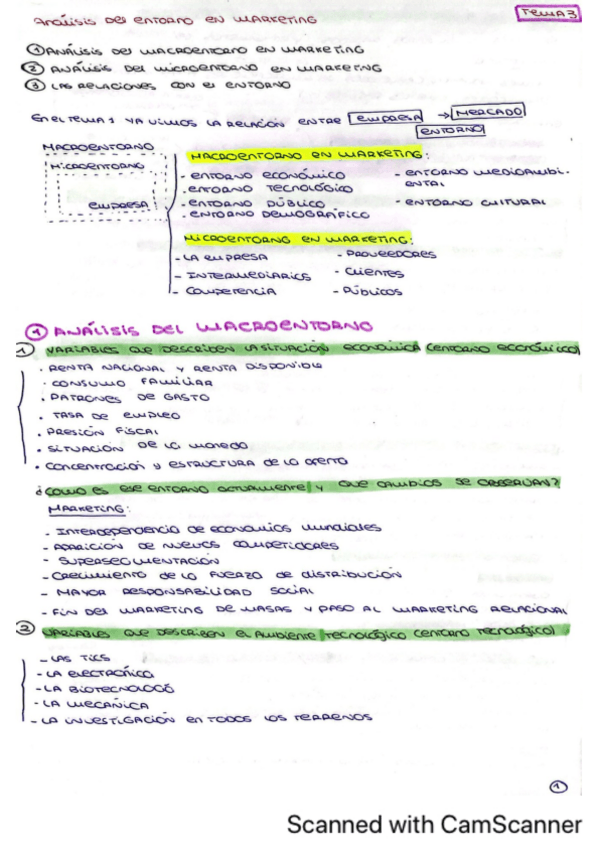 Análisis del entorno en marketing
TEMA 3
① ANÁLISIS DEL MACROENTORNO EN MARKETING
② ANÁLISIS DEL MICROENTORNO EN MARKETING
③ LAS RELACIONES CON EL ENTORNO
EN EL TEMA 1 YA VIMOS LA RELACIÓN ENTRE EMPRESA → MERCADO
ENTORNO
MACROENTORNO
MICROENTORNO
EMPRESA
MACROENTORNO EN MARKETING:
- ENTORNO ECONÓMICO
- ENTORNO TECNOLÓGICO
- ENTORNO PÚBLICO
- ENTORNO DEMOGRÁFICO
- ENTORNO MEDIOAMBI-
ENTAL
- ENTORNO CULTURAL
MICROENTORNO EN MARKETING:
- LA EMPRESA
- INTERMEDIARIOS
- COMPETENCIA
- PROVEEDORES
- CLIENTES
- PÚBLICOS
① ANÁLISIS DEL MACROENTORNO
1 VARIABLES QUE DESCRIBEN LA SITUACIÓN ECONÓMICA (ENTORNO ECONÓMICO)
· RENTA NACIONAL Y RENTA DISPONIBLE
· CONSUMO FAMILIAR
· PATRONES DE GASTO
· TASA DE EMPLEO
· PRESIÓN FISCAL
· SITUACIÓN DE LA MONEDA
· CONCENTRACIÓN Y ESTRUCTURA DE LA OFERTA
¿CÓMO ES ESE ENTORNO ACTUALMENTE Y QUE CAMBIOS SE OBSERVAN?
MARKETING:
- INTERDEPENDENCIA DE ECONOMÍAS MUNDIALES
- APARICIÓN DE NUEVOS COMPETIDORES
- SUPERSEGMENTACIÓN
- CRECIMIENTO DE LA FUERZA DE DISTRIBUCIÓN
- MAYOR RESPONSABILIDAD SOCIAL
- FIN DEL MARKETING DE MASAS Y PASO AL MARKETING RELACIONAL
2 VARIABLES QUE DESCRIBEN EL AMBIENTE TECNOLÓGICO (ENTORNO TECNOLÓGICO)
- LAS TICS
- LA ELECTRÓNICA
- LA BIOTECNOLOGÍA
- LA MECÁNICA
- LA INVESTIGACIÓN EN TODOS LOS TERRENOS
1
Scanned with CamScanner